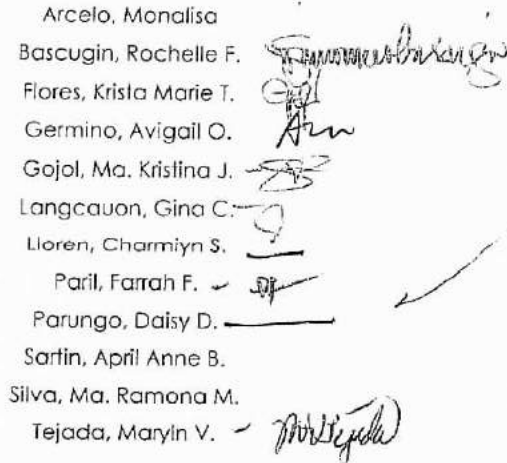 Arcelo, Monalisa
Bascugin, Rochelle F.
Flores, Krista Marie T.
Germino, Avigail O.
Gojol, Ma. Kristina J.
Langcauon, Gina C.
Lloren, Charmiyn S.
Paril, Farrah F.
Parungo, Daisy D.
Sartin, April Anne B.
Silva, Ma. Ramona M.
Tejada, Maryin V.